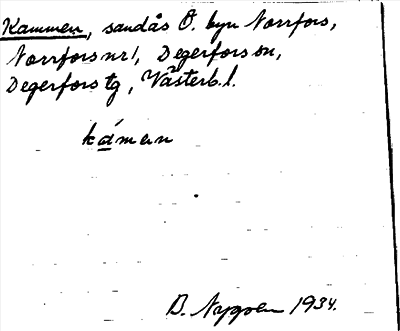 Kammen, sandås Ö. byn Norrfors,
Norrfors nr 1, Degerfors sn,
Degerfors tg, Västerb. l.
kámen
B. Nygren 1934.